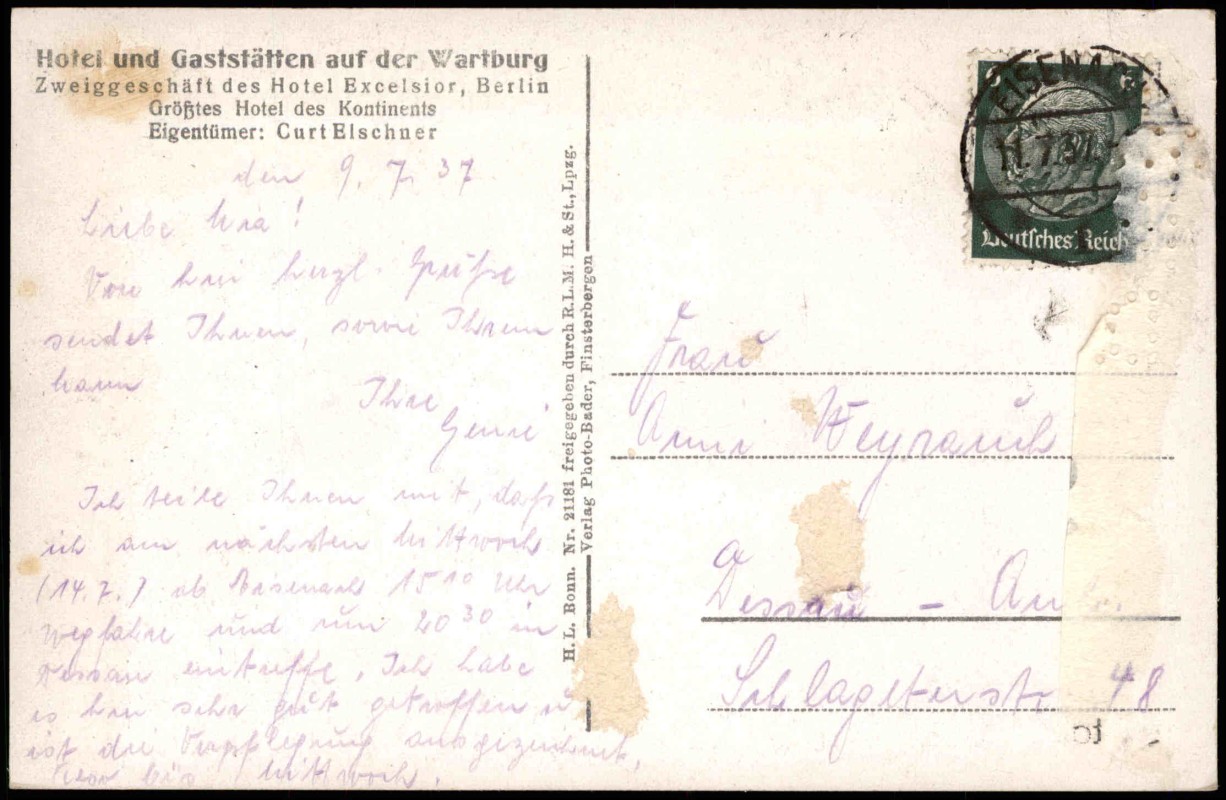 Hotel und Gaststätten auf der Wartburg
Zweiggeschäft des Hotel Excelsior, Berlin
Größtes Hotel des Kontinents
Eigentümer: Curt Elschner
den 9. 7. 37.
Liebe !
Von hier herzl. Grüße
sendet Ihnen, sowie Ihrem
Mann
Ihre
Ich teile Ihnen mit, daß
ich am nächsten Mittwoch
(14.7.) ab Eisenach 15 10 Uhr
wegfahre und um 20 30 in
Dessau eintreffe. Ich habe
es hier sehr gut getroffen u
ist die Verpflegung ausgezeichnet,
bis Mittwoch.
H. L. Bonn. Nr. 21181 freigegeben durch R.L.M. H. & St., Lpzg.
Verlag Photo-Bader, Finsterbergen
EISENACH
11.7.37.
Deutsches Reich
Frau
Anni Weyrauch
Dessau - An
Schlageterstr 48